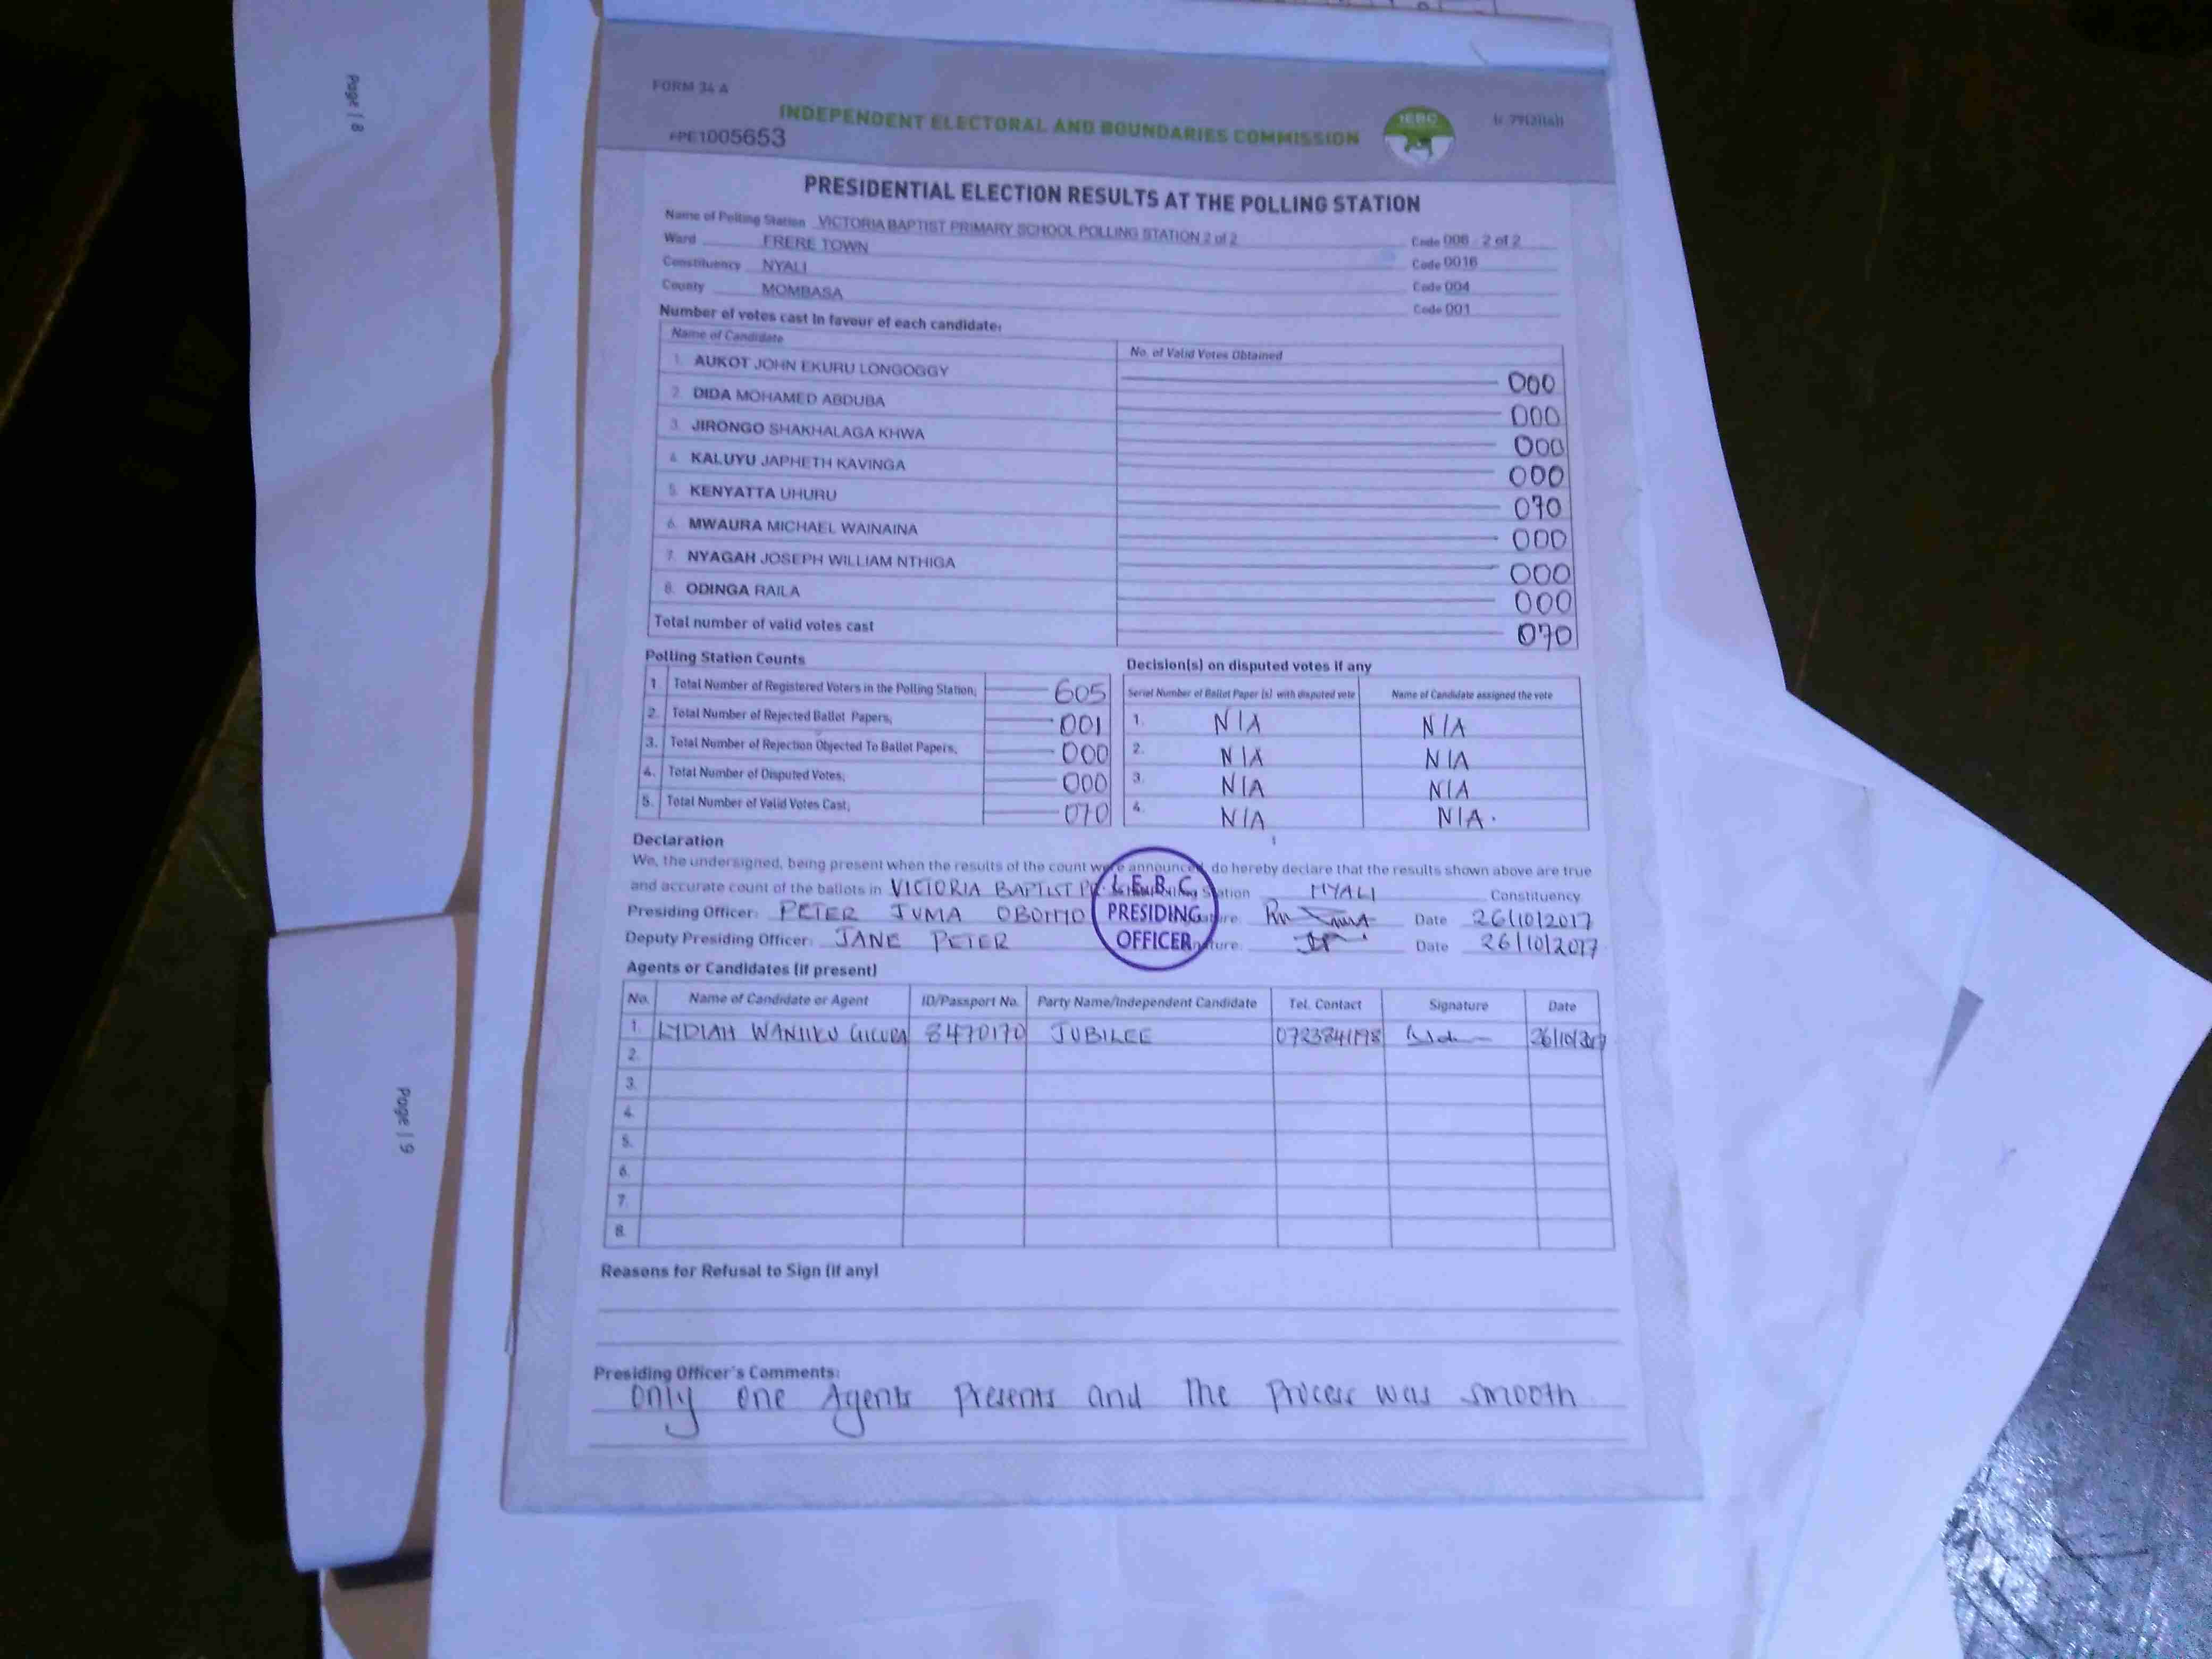 Page | 8
Page | 9
FORM 34 A
INDEPENDENT ELECTORAL AND BOUNDARIES COMMISSION
IEBC
PE1005653
PRESIDENTIAL ELECTION RESULTS AT THE POLLING STATION
Name of Polling Station VICTORIA BAPTIST PRIMARY SCHOOL POLLING STATION 2 of 2 Code 006 - 2 of 2
Ward FRERE TOWN Code 0016
Constituency NYALI Code 004
County MOMBASA Code 001
Number of votes cast in favour of each candidate:
Name of Candidate No. of Valid Votes Obtained
1. AUKOT JOHN EKURU LONGOGGY 000
2. DIDA MOHAMED ABDUBA 000
3. JIRONGO SHAKHALAGA KHWA 000
4. KALUYU JAPHETH KAVINGA 000
5. KENYATTA UHURU 070
6. MWAURA MICHAEL WAINAINA 000
7. NYAGAH JOSEPH WILLIAM NTHIGA 000
8. ODINGA RAILA 000
Total number of valid votes cast 070
Polling Station Counts
1 Total Number of Registered Voters in the Polling Station; 605
2. Total Number of Rejected Ballot Papers; 001
3. Total Number of Rejection Objected To Ballot Papers; 000
4. Total Number of Disputed Votes; 000
5. Total Number of Valid Votes Cast; 070
Decision(s) on disputed votes if any
Serial Number of Ballot Paper (s) with disputed vote Name of Candidate assigned the vote
1. N/A N/A
2. N/A N/A
3. N/A N/A
4. N/A N/A.
Declaration
We, the undersigned, being present when the results of the count were announced, do hereby declare that the results shown above are true
and accurate count of the ballots in VICTORIA BAPTIST Station NYALI Constituency
Presiding Officer: PETER JUMA Date 26/10/2017
Deputy Presiding Officer: JANE PETER Date 26/10/2017
I.E.B.C
PRESIDING
OFFICER
Agents or Candidates (if present)
No. Name of Candidate or Agent ID/Passport No. Party Name/Independent Candidate Tel. Contact Signature Date
1. LYDIAH WANJIKU 8470170 JUBILEE 26/10/2017
2.
3.
4.
5.
6.
7.
8.
Reasons for Refusal to Sign (if any)
Presiding Officer's Comments:
only one Agents Presents and the Process was smooth